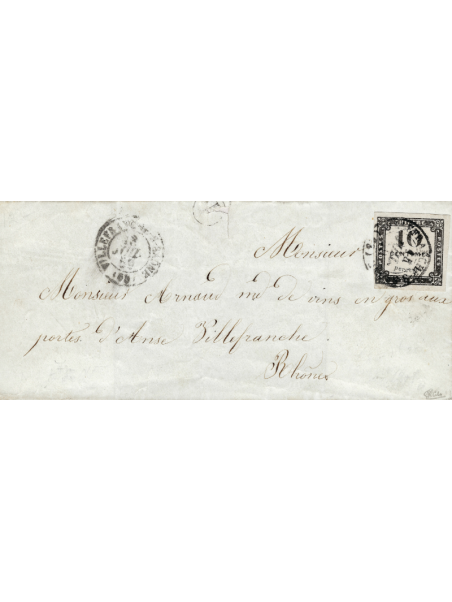 VILLEFRANCHE-S-SAONE (68)
10
POSTES
Monsieur
Monsieur Arnaud md de vins en gros aux
portes d'Anse Villefranche.
Rhône